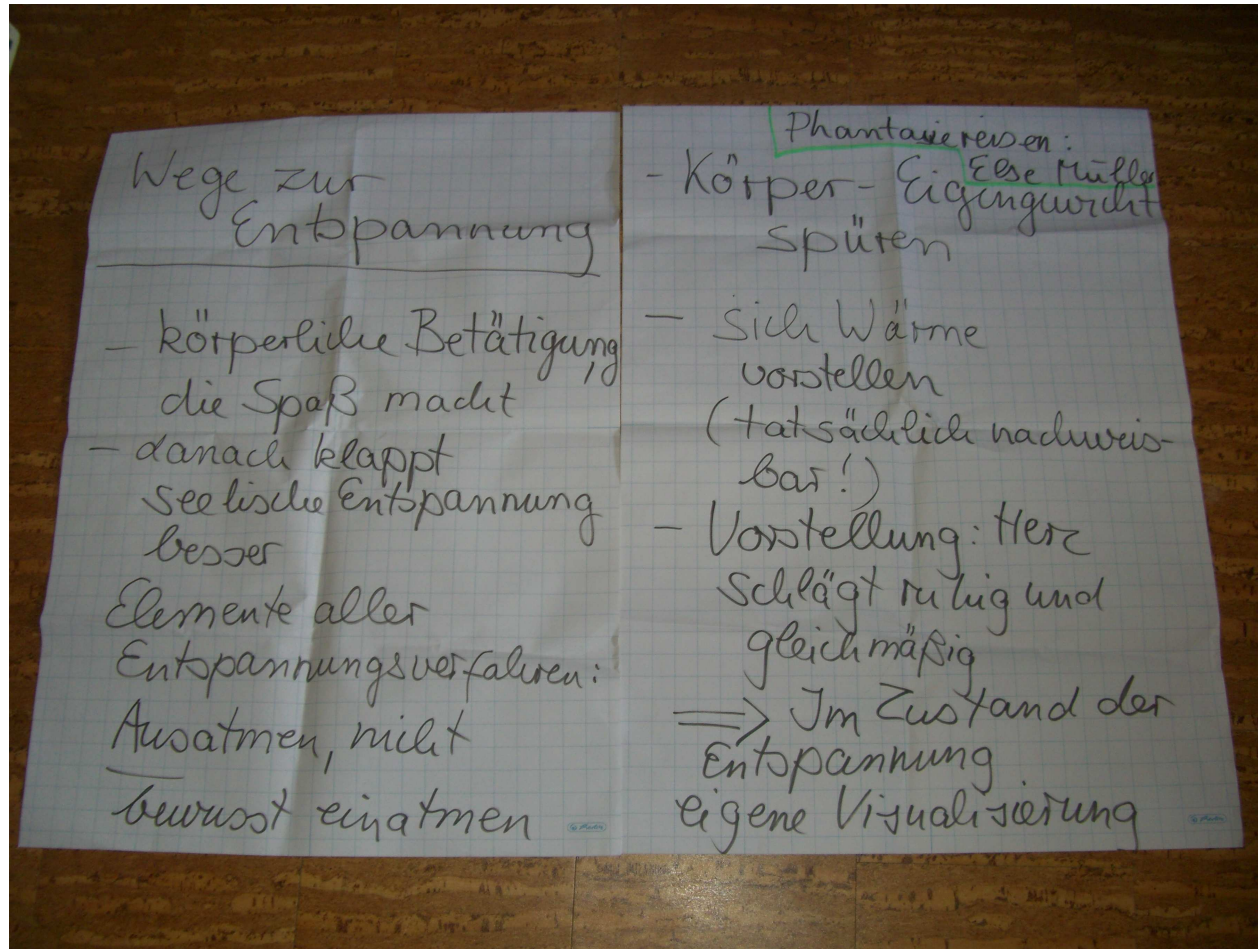 Wege zur
Entspannung
- körperliche Betätigung,
die Spaß macht
- danach klappt
seelische Entspannung
besser
Elemente aller
Entspannungsverfahren:
Ausatmen, nicht
bewusst einatmen
Phantasiereisen:
Else Müller
- Körper-Eigengewicht
spüren
- sich Wärme
vorstellen
(tatsächlich nachweis-
bar!)
- Vorstellung: Herz
schlägt ruhig und
gleichmäßig
⇒ Im Zustand der
Entspannung
eigene Visualisierung